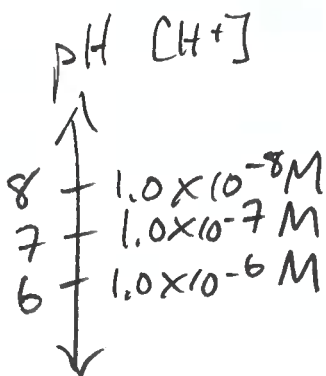 pH [H+]
8 1.0×10⁻⁸M
7 1.0×10⁻⁷ M
6 1.0×10⁻⁶ M